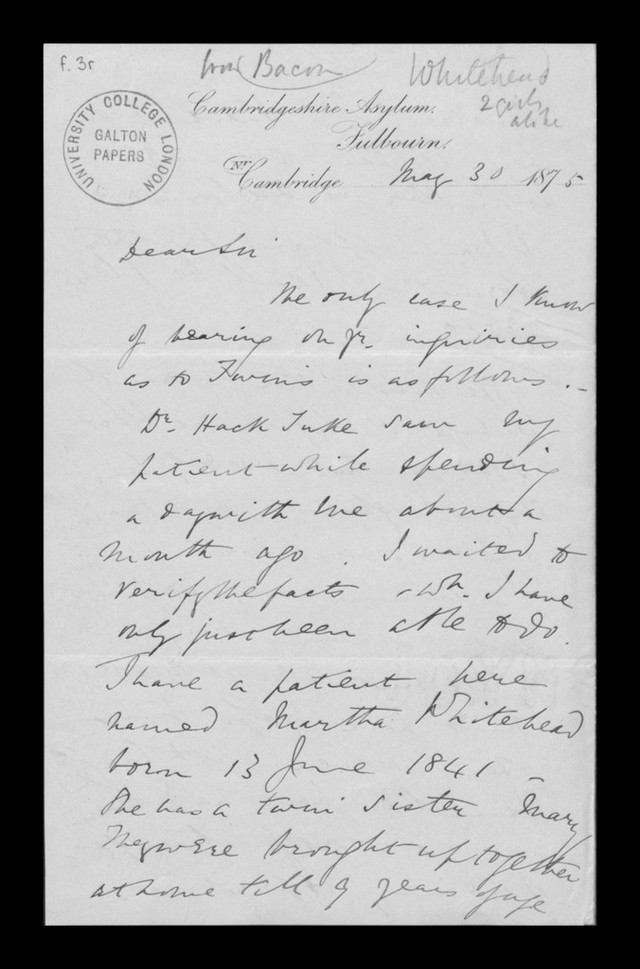 f. 3r
Bacon
Whitehead
2 girls
alike
UNIVERSITY COLLEGE LONDON
GALTON
PAPERS
Cambridgeshire Asylum.
Fulbourn.
Nr. Cambridge May 30 1875
Dear Sir
The only case I know
of bearing on yr. inquiries
as to Twins is as follows. -
Dr. Hack Tuke saw my
patient while spending
a day with me about a
month ago. I waited to
verify the facts wh. I have
only just been able to do.
I have a patient here
named Martha Whitehead
born 13 June 1841 -
She has a twin sister Mary
They were brought up together
at home till 9 years of age